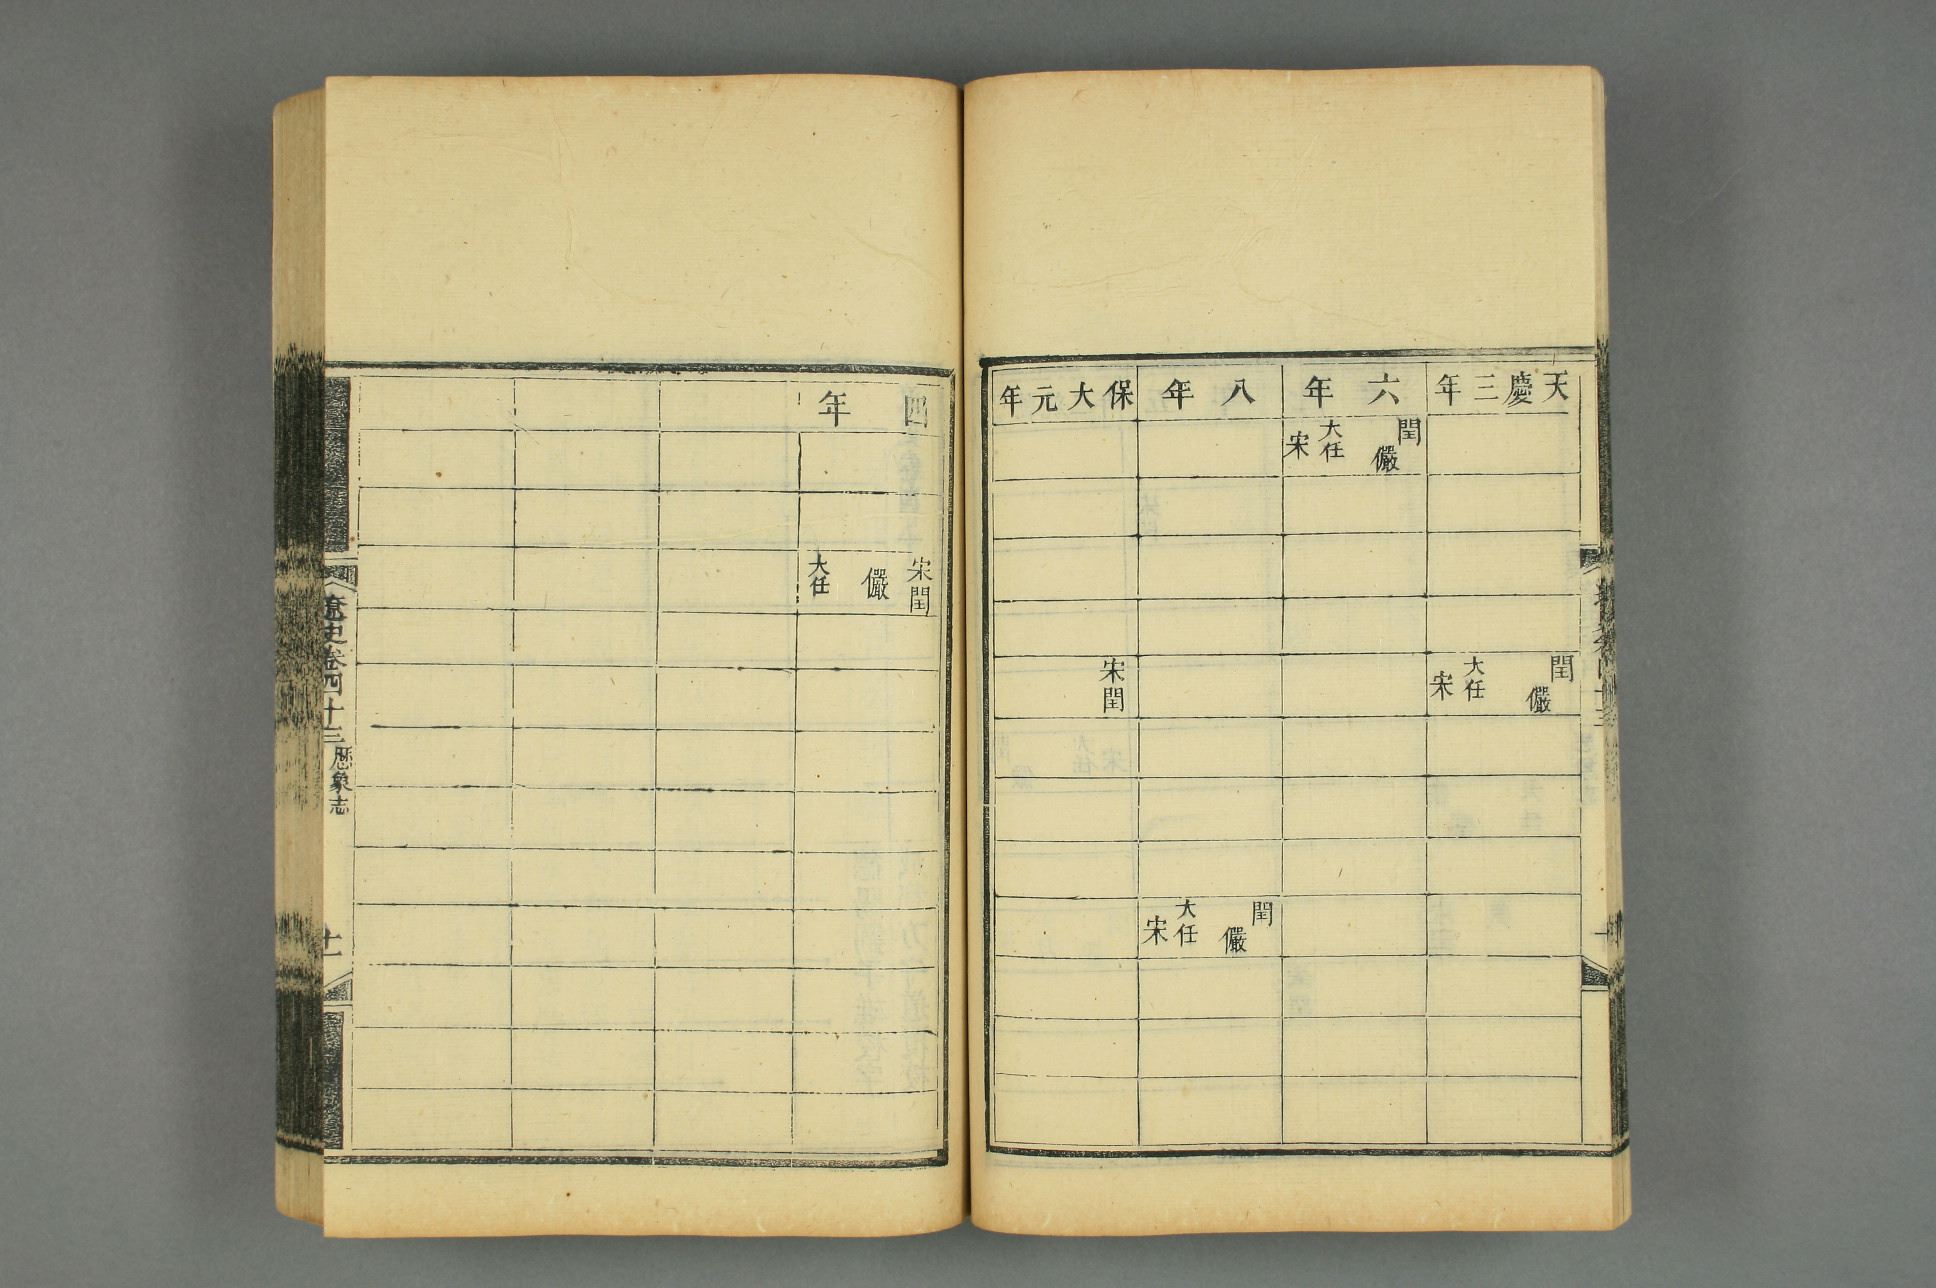 天慶三年
閏
儼
大任
宋
六年
閏
儼
大任
宋
八年
閏
儼
大任
宋
保大元年
宋閏
四年
宋閏
儼
大任
遼史卷四十三
歷象志
十一